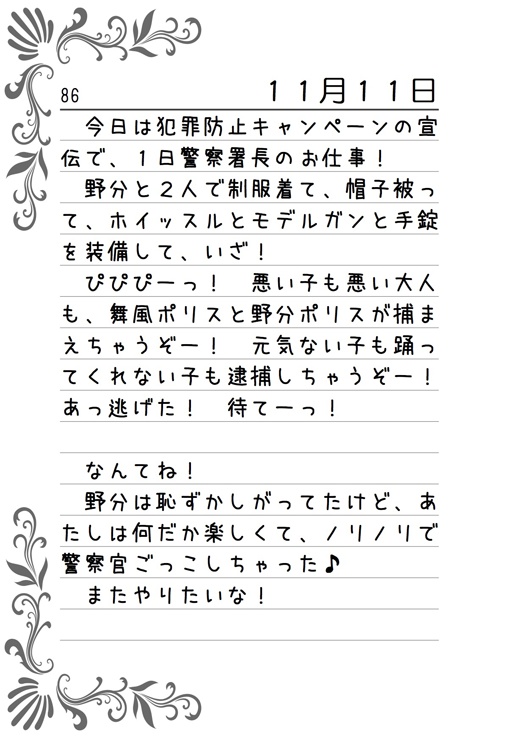 86
１１月１１日
　今日は犯罪防止キャンペーンの宣
伝で、１日警察署長のお仕事！
　野分と２人で制服着て、帽子被っ
て、ホイッスルとモデルガンと手錠
を装備して、いざ！
　ぴぴぴーっ！　悪い子も悪い大人
も、舞風ポリスと野分ポリスが捕ま
えちゃうぞー！　元気ない子も踊っ
てくれない子も逮捕しちゃうぞー！
あっ逃げた！　待てーっ！
　なんてね！
　野分は恥ずかしがってたけど、あ
たしは何だか楽しくて、ノリノリで
警察官ごっこしちゃった♪
　またやりたいな！